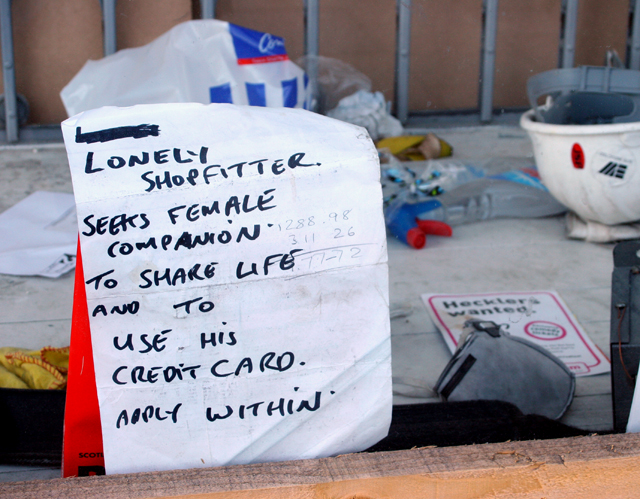 LONELY
SHOPFITTER.
SEEKS FEMALE
COMPANION.
TO SHARE LIFE
AND TO
USE HIS
CREDIT CARD.
APPLY WITHIN.
1288.98
311 26
Hecklers
wanted.
SCOT